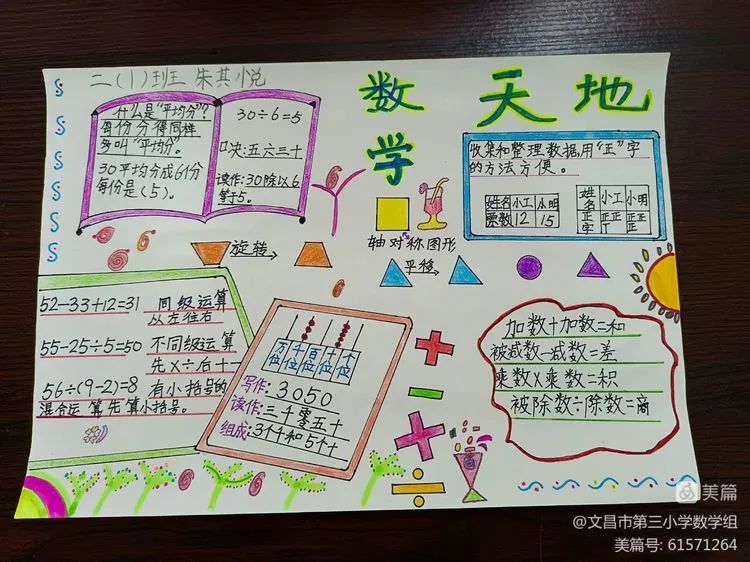 二(1)班 朱其悦
数学天地
什么是“平均分”？
每份分得同样
多叫“平均分”。
30平均分成6份
每份是(5)。
30÷6=5
口决:五六三十
读作:30除以6
等于5。
收集和整理数据,用“正”字
的方法方便。
姓名 小工 小明
票数 12 15
姓名 小工 小明
正字 正正丅 正正正
旋转
轴对称图形
平移
52-33+12=31 同级运算
从左往右
55-25÷5=50 不同级运算
先×÷后+-
56÷(9-2)=8 有小括号的
混合运算先算小括号。
万位 千位 百位 十位 个位
写作:3050
读作:三千零五十
组成:3个千和5个十
加数+加数=和
被减数-减数=差
乘数×乘数=积
被除数÷除数=商
美篇
@文昌市第三小学数学组
美篇号: 61571264